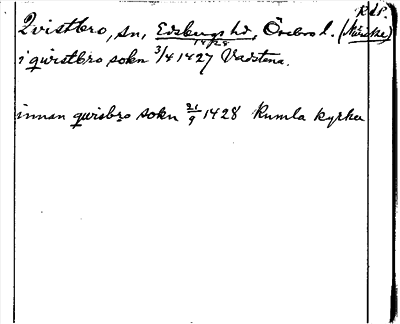 RAP.
Qvistbro, sn, Edsbergs hd, Örebro l. (Närike)
1428
i qwistbro sokn 3/4 1427 Vadstena.
innan qwisbro sokn 21/9 1428 Kumla kyrka